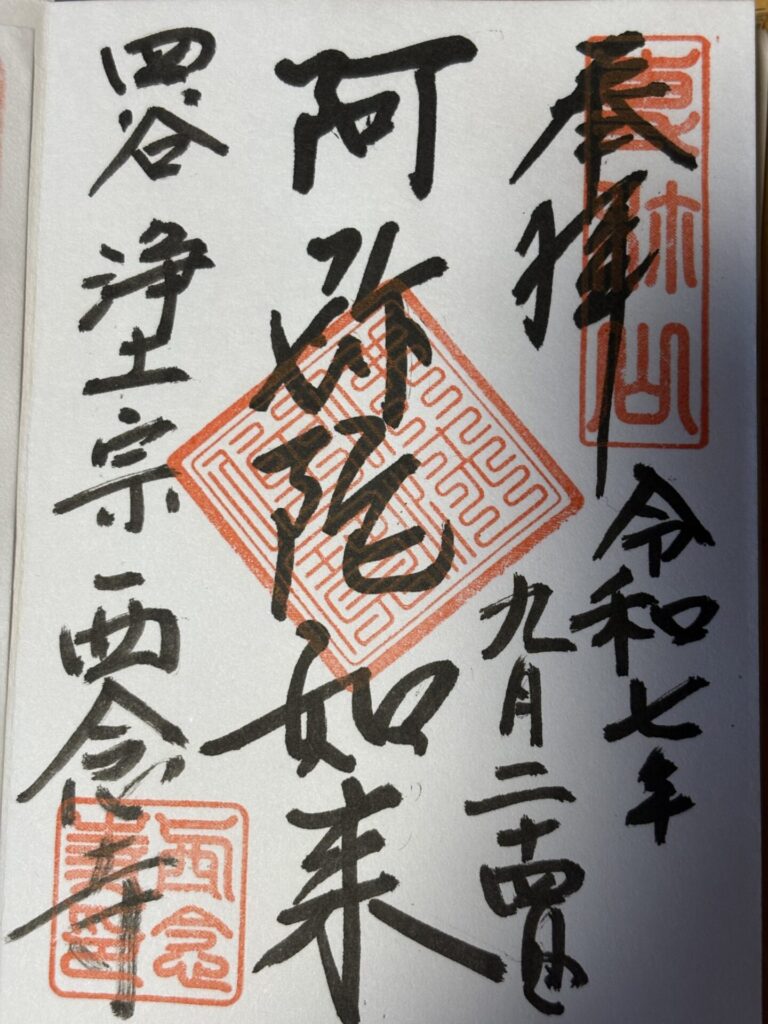 奉拝
専称山
令和七年
九月二十四日
阿弥陀如来
四谷 浄土宗 西念寺
西念
寺印